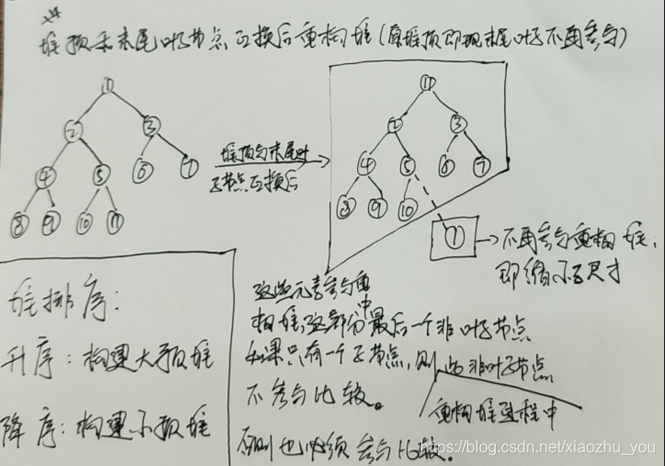 堆顶和末尾叶子节点互换后重构堆(原堆顶即现末尾叶子不再参与)
①
② ③
④ ⑤ ⑥ ⑦
⑧ ⑨ ⑩ ⑪
堆顶与末尾叶
子节点互换后
⑪
② ③
④ ⑤ ⑥ ⑦
⑧ ⑨ ⑩
①
不再参与重构堆,
即缩小了尺寸
堆排序:
升序:构建大顶堆
降序:构建小顶堆
这些元素参与重
构堆,这部分中最后一个非叶子节点
如果只有一个子节点,则此非叶子节点
不参与比较。
重构堆过程中
否则也必须参与比较。
https://blog.csdn.net/xiaozhu_you